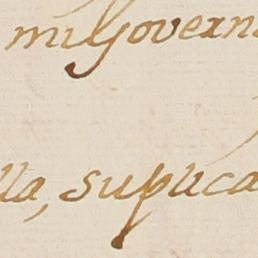 mi Governa
lla, suplica